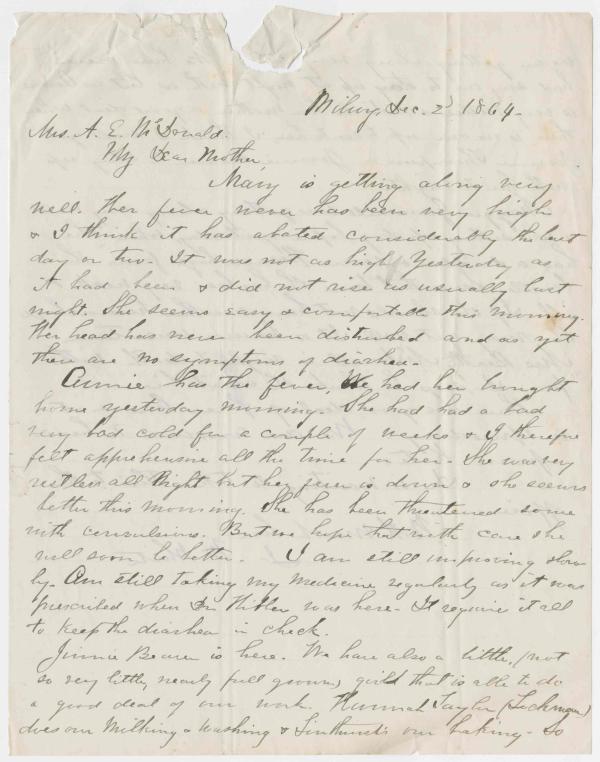 Milroy, Dec. 2d 1864.
Mrs. A. E. McDonald.
My Dear Mother,
Mary is getting along very
well. Her fever never has been very high
& I think it has abated considerably the last
day or two. It was not as high yesterday as
it had been & did not rise as usually last
night. She seems easy & comfortable this morning.
Her head has never been disturbed and as yet
there are no symptoms of diarhea.
Annie has the fever, We had her brought
home yesterday morning. She had had a bad
very bad cold for a couple of weeks & I therefore
felt apprehensive all the time for her. She was very
restless all Night but her fever is down & she seems
better this morning. She has been threatened some
with convulsions. But we hope that with care she
will soon be better. I am still improving slow
ly. Am still taking my Medicine regularly as it was
prescribed when Dr was here. It requires it all
to keep the diarhea in check.
Jinnie is here. We have also a little, (not
so very little, nearly full grown) girl that is able to do
a good deal of our work. Hannah Taylor
does our Milking & Washing & our baking. So